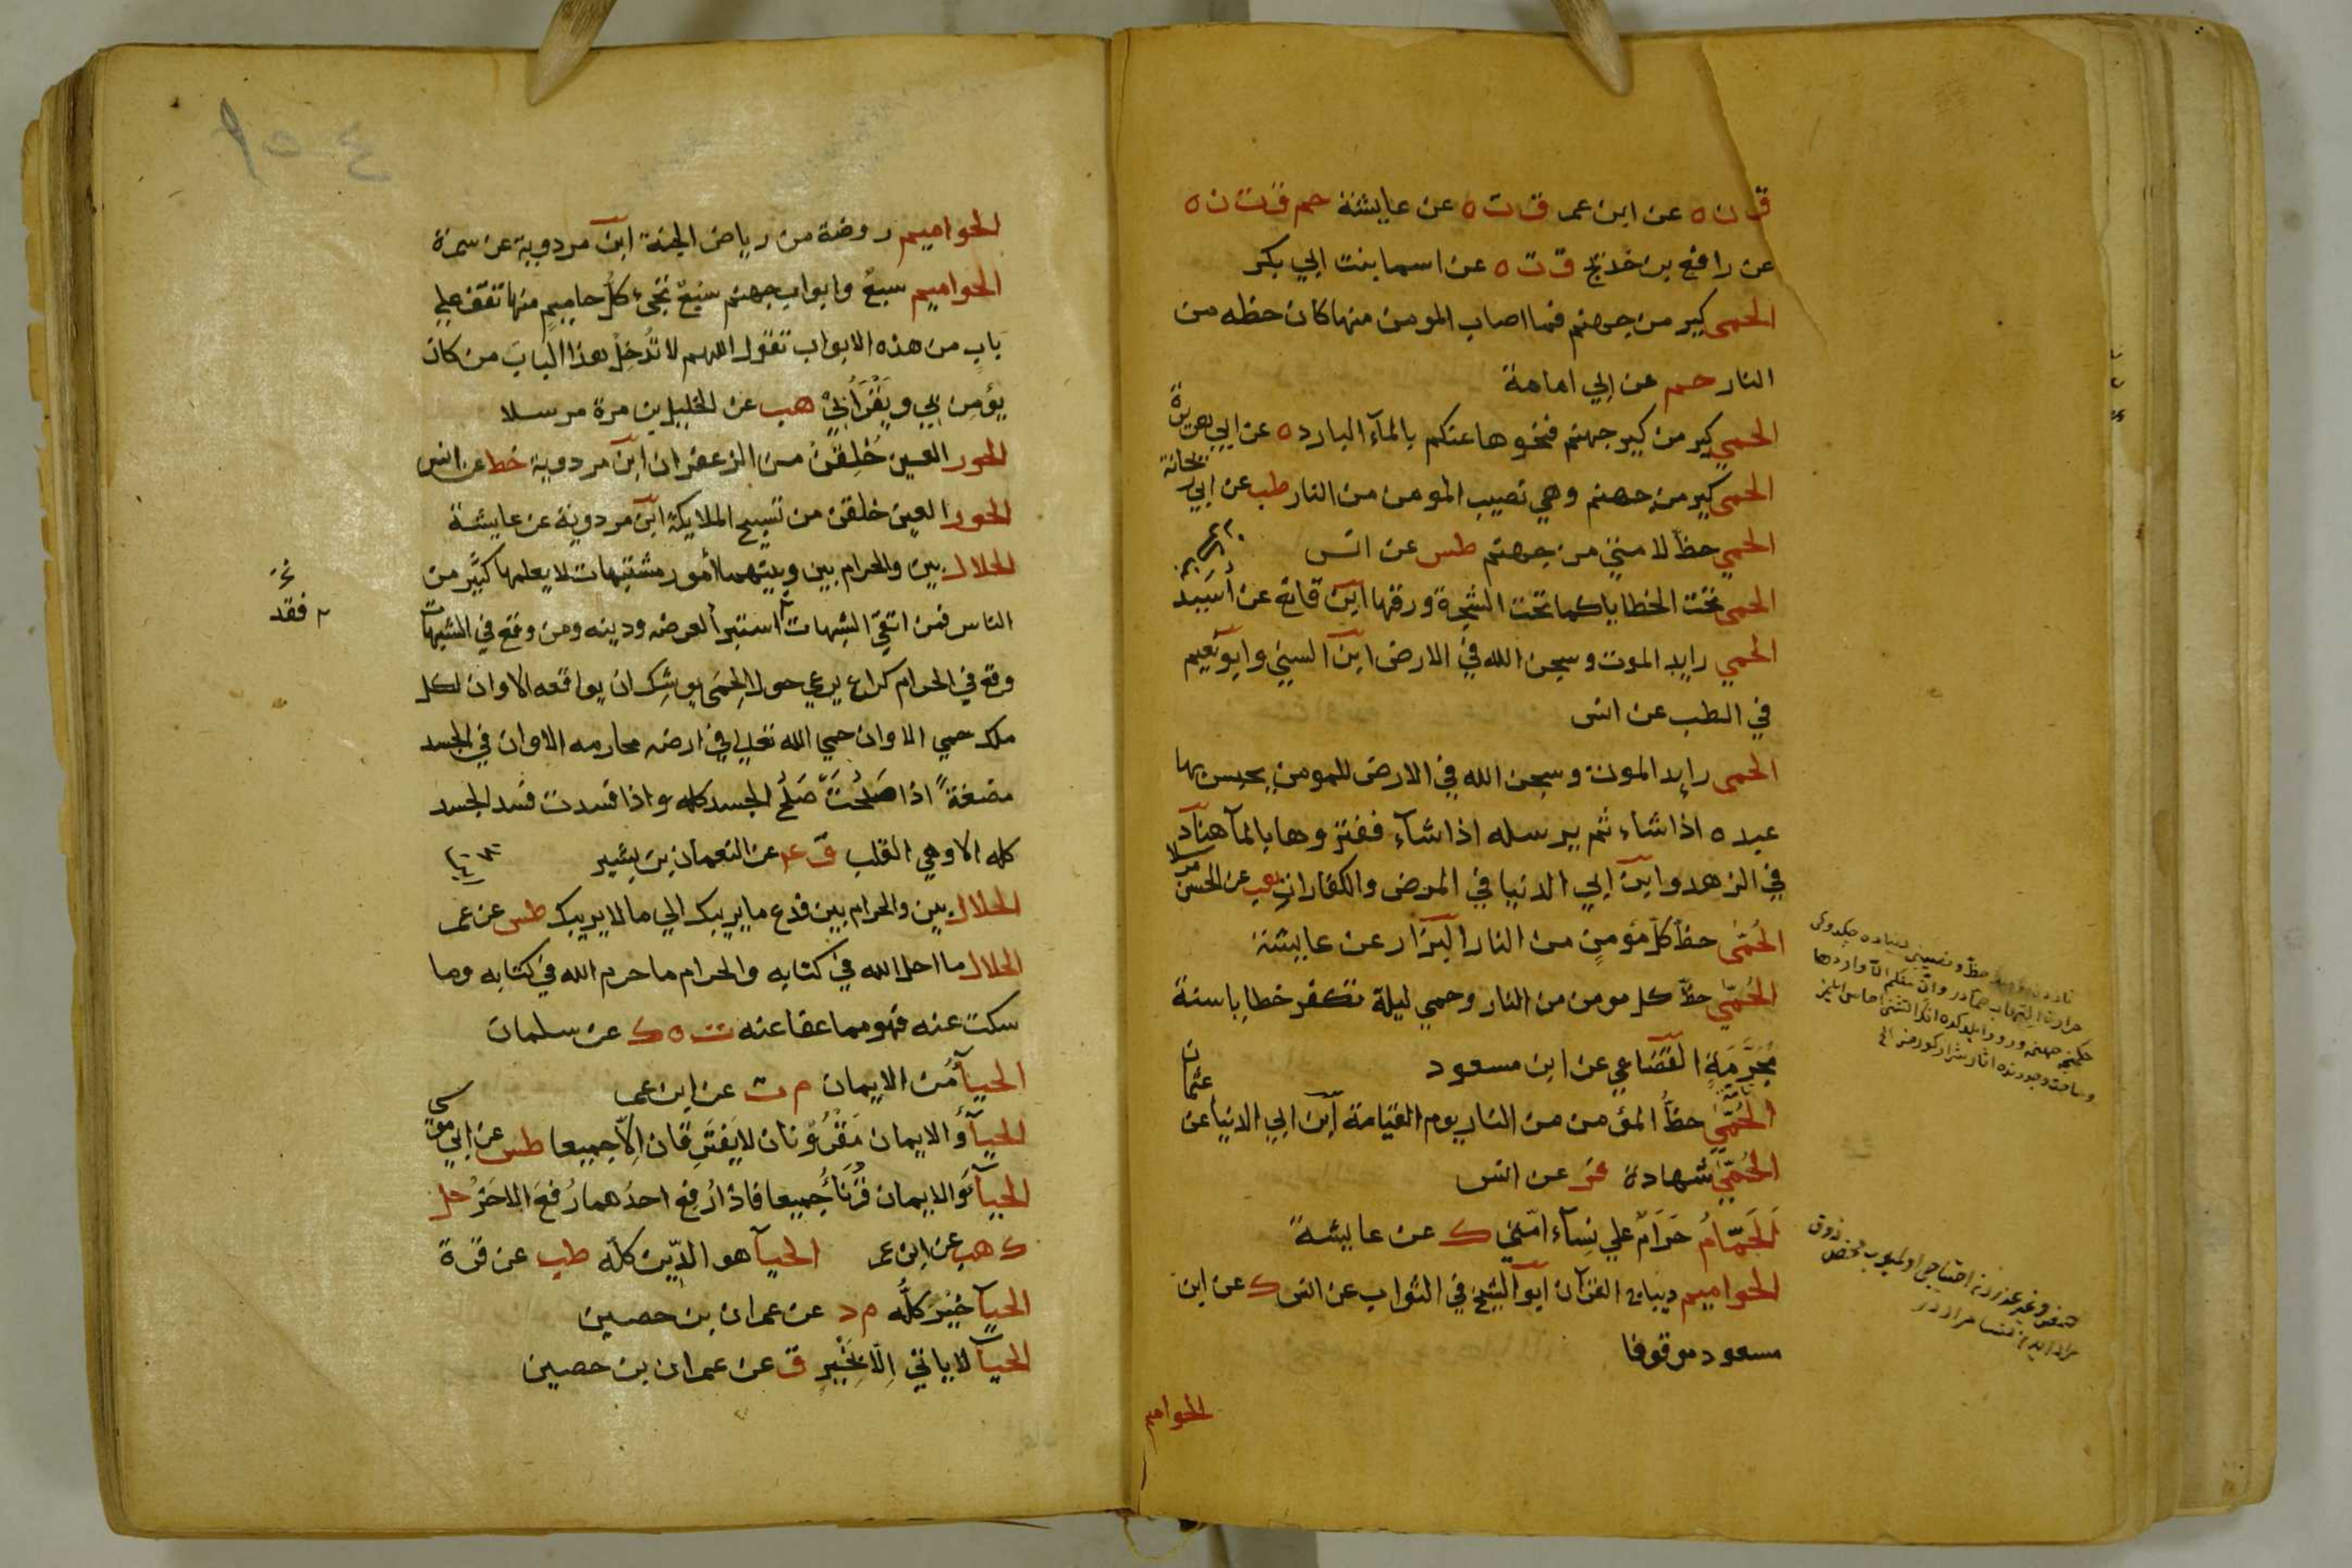 ق ن ه عن ابن عمر ق ت ه عن عايشة حم ق ت ن ه
عن رافع بن خديج ق ت ه عن اسما بنت ابي بكر
الحمى كير من جهنم فما اصاب المومن منها كان حظه من
النار حم عن ابي امامة
الحمي كير من كير جهنم فنحوها عنكم بالمآء البارد ه عن ابي هريرة
الحمى كير من جهنم وهي نصيب المومن من النار طب عن ابي ريحانة
الحمي حظ لامتي من جهنم طس عن انس
الحمى تحت الخطايا كما تحت الشجرة ورقها ابن قانع عن أسيد
الحمي رايد الموت وسجن الله في الارض ابن السني وابو نعيم
في الطب عن انس
الحمى رايد الموت وسجن الله في الارض للمومن يحبس بها
عبده اذا شاء ثم يرسله اذا شآء ففتروها بالمآ هناد
في الزهد وابن ابي الدنيا في المرض والكفارات هب عن الحسن مرسلا
الحُمّى حظ كلّ مؤمنٍ من النار البزار عن عايشة
الحُمّي حظّ كل مومن من النار وحمي ليلة تكفر خطايا سنة
مُجَرَّمَةٍ القضاعي عن ابن مسعود
الحُمّي حظُّ المؤمن من النار يوم القيامة ابن ابي الدنيا عن عثمان
الحُمّي شهادة فر عن انس
اَلحَمّامُ حَرَامٌ علي نِسآء امّتي ك عن عايشة
الحواميم ديباج القرآن ابو الشيخ في الثواب عن انس ك عن ابن
مسعود موقوفا
الحواميم
الحواميم روضة من رياض الجنة ابن مردوية عن سمرة
الحواميم سبعٌ وابواب جهنم سبعٌ تجىء كلّ حاميمٍ منها تقف علي
بابٍ من هذه الابواب تقول اللهم لا تُدخِلْ هذا البابَ من كان
يؤمن بي ويَقْرَأُنِيْ هب عن الخليل بن مرة مرسلا
الحور العين خُلِقْنَ من الزعفران ابن مردوية خط عن انس
الحور العين خلقن من تسبيح الملايكة ابن مردوية عن عايشة
الحلال بين والحرام بين وبينهما أمور مشتبهات لا يعلمها كثير من
الناس فمن اتقي الشبهات استبرأ لعرضه ودينه ومن وقع في الشبهات
فقد
وقع في الحرام كراع يرعي حول الحِمَى يوشِك ان يواقعه الا وان لكل
ملك حمي الا وان حمي الله تعلي في ارضه محارمه الا وان في الجسد
مضغةً اذا صَلُحَتْ صَلُحَ الجسد كله واذا فسدت فسد الجسد
كله الا وهي القلب ق ع عن النعمان بن بشير
الحلال بين والحرام بين فدع ما يريبك الي ما لا يريبك طس عن عمر
الحلال ما احل الله في كتابه والحرام ما حرم الله في كتابه وما
سكت عنه فهو مما عفا عنه ت ه ك عن سلمان
الحيآءُ من الايمان م ت عن ابن عمر
الحيآءُ والايمان مَقْرُوْنَان لا يَفتَرِقَان اِلّا جميعا طس عن ابي موسى
الحيآءُ والايمان قُرِنَا جُميعا فاذا رُفِع احدُهما رُفعَ الاخَرُ حل
ك هب عن ابن عمر الحيآ هو الدّين كلّه طب عن قرة
الحيآ خَيْر كلُّه م د عن عمران بن حصين
الحيآ لا ياتي اِلّا بِخَيْرٍ ق عن عمران بن حصين